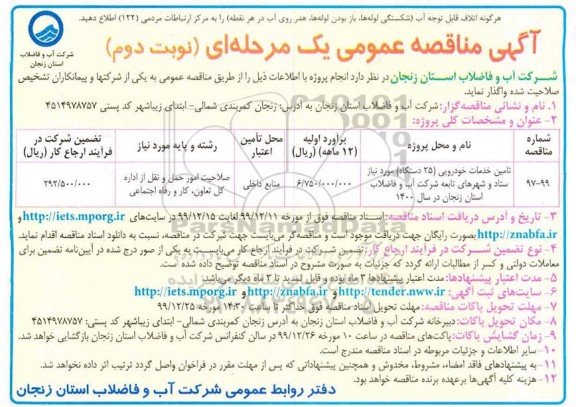 هرگونه اتلاف قابل توجه آب (شکستگی لوله‌ها، باز بودن لوله‌ها، هدر روی آب در هر نقطه) را به مرکز ارتباطات مردمی (۱۲۲) اطلاع دهید.
شرکت آب و فاضلاب
استان زنجان
آگهی مناقصه عمومی یک مرحله‌ای (نوبت دوم)
شرکت آب و فاضلاب استان زنجان در نظر دارد انجام پروژه با اطلاعات ذیل را از طریق مناقصه عمومی به یکی از شرکتها و پیمانکاران تشخیص
صلاحیت شده واگذار نماید.
۱- نام و نشانی مناقصه‌گزار: شرکت آب و فاضلاب استان زنجان به آدرس: زنجان کمربندی شمالی- ابتدای زیباشهر کد پستی ۴۵۱۴۹۷۸۷۵۷
۲- عنوان و مشخصات کلی پروژه:
شماره مناقصه
نام و محل پروژه
برآورد اولیه (۱۲ ماهه) (ریال)
محل تأمین اعتبار
رشته و پایه مورد نیاز
تضمین شرکت در فرآیند ارجاع کار (ریال)
۹۷-۹۹
تامین خدمات خودرویی (۲۵ دستگاه) مورد نیاز ستاد و شهرهای تابعه شرکت آب و فاضلاب استان زنجان در سال ۱۴۰۰
۶/۷۵۰/۰۰۰/۰۰۰
منابع داخلی
صلاحیت امور حمل و نقل از اداره کل تعاون، کار و رفاه اجتماعی
۲۹۲/۵۰۰/۰۰۰
۳- تاریخ و آدرس دریافت اسناد مناقصه: اسناد مناقصه فوق از مورخه ۹۹/۱۲/۱۱ لغایت ۹۹/۱۲/۱۵ در سایت‌های http://iets.mporg.ir و
http://znabfa.ir بصورت رایگان جهت دریافت موجود است و مناقصه‌گر می‌بایست جهت شرکت در مناقصه، نسبت به دانلود اسناد مناقصه اقدام نماید.
۴- نوع تضمین شرکت در فرآیند ارجاع کار: تضمین شرکت در فرآیند ارجاع کار می‌بایست به یکی از صور درج شده در آیین‌نامه تضمین برای
معاملات دولتی و کسر از مطالبات ارائه گردد که جزئیات به صورت مشروح در اسناد مناقصه توضیح داده شده است.
۵- مدت اعتبار پیشنهادها: مدت اعتبار پیشنهادها ۳ ماه بوده و قابل تمدید تا ۳ ماه دیگر می‌باشد.
۶- سایت‌های ثبت آگهی: http://tender.nww.ir و http://znabfa.ir و http://iets.mporg.ir
۷- مهلت تحویل پاکات مناقصه: مهلت تحویل اسناد مناقصه فوق حداکثر تا ساعت ۱۴:۳۰ مورخه ۹۹/۱۲/۲۵
۸- مکان تحویل پاکات: دبیرخانه شرکت آب و فاضلاب استان زنجان به آدرس زنجان کمربندی شمالی- ابتدای زیباشهر کد پستی: ۴۵۱۴۹۷۸۷۵۷
۹- زمان گشایش پاکات: پاکت‌های مناقصه در ساعت ۱۰ مورخه ۹۹/۱۲/۲۶ در سالن کنفرانس شرکت آب و فاضلاب استان زنجان بازگشایی خواهد شد.
۱۰- سایر اطلاعات و جزئیات مربوطه در اسناد مناقصه مندرج است.
۱۱- به پیشنهادهای فاقد امضاء، مشروط، مخدوش و همچنین پیشنهاداتی که پس از مهلت مقرر در فراخوان واصل گردد ترتیب اثر داده نخواهد شد.
۱۲- هزینه کلیه آگهی‌ها برعهده برنده مناقصه خواهد بود.
دفتر روابط عمومی شرکت آب و فاضلاب استان زنجان